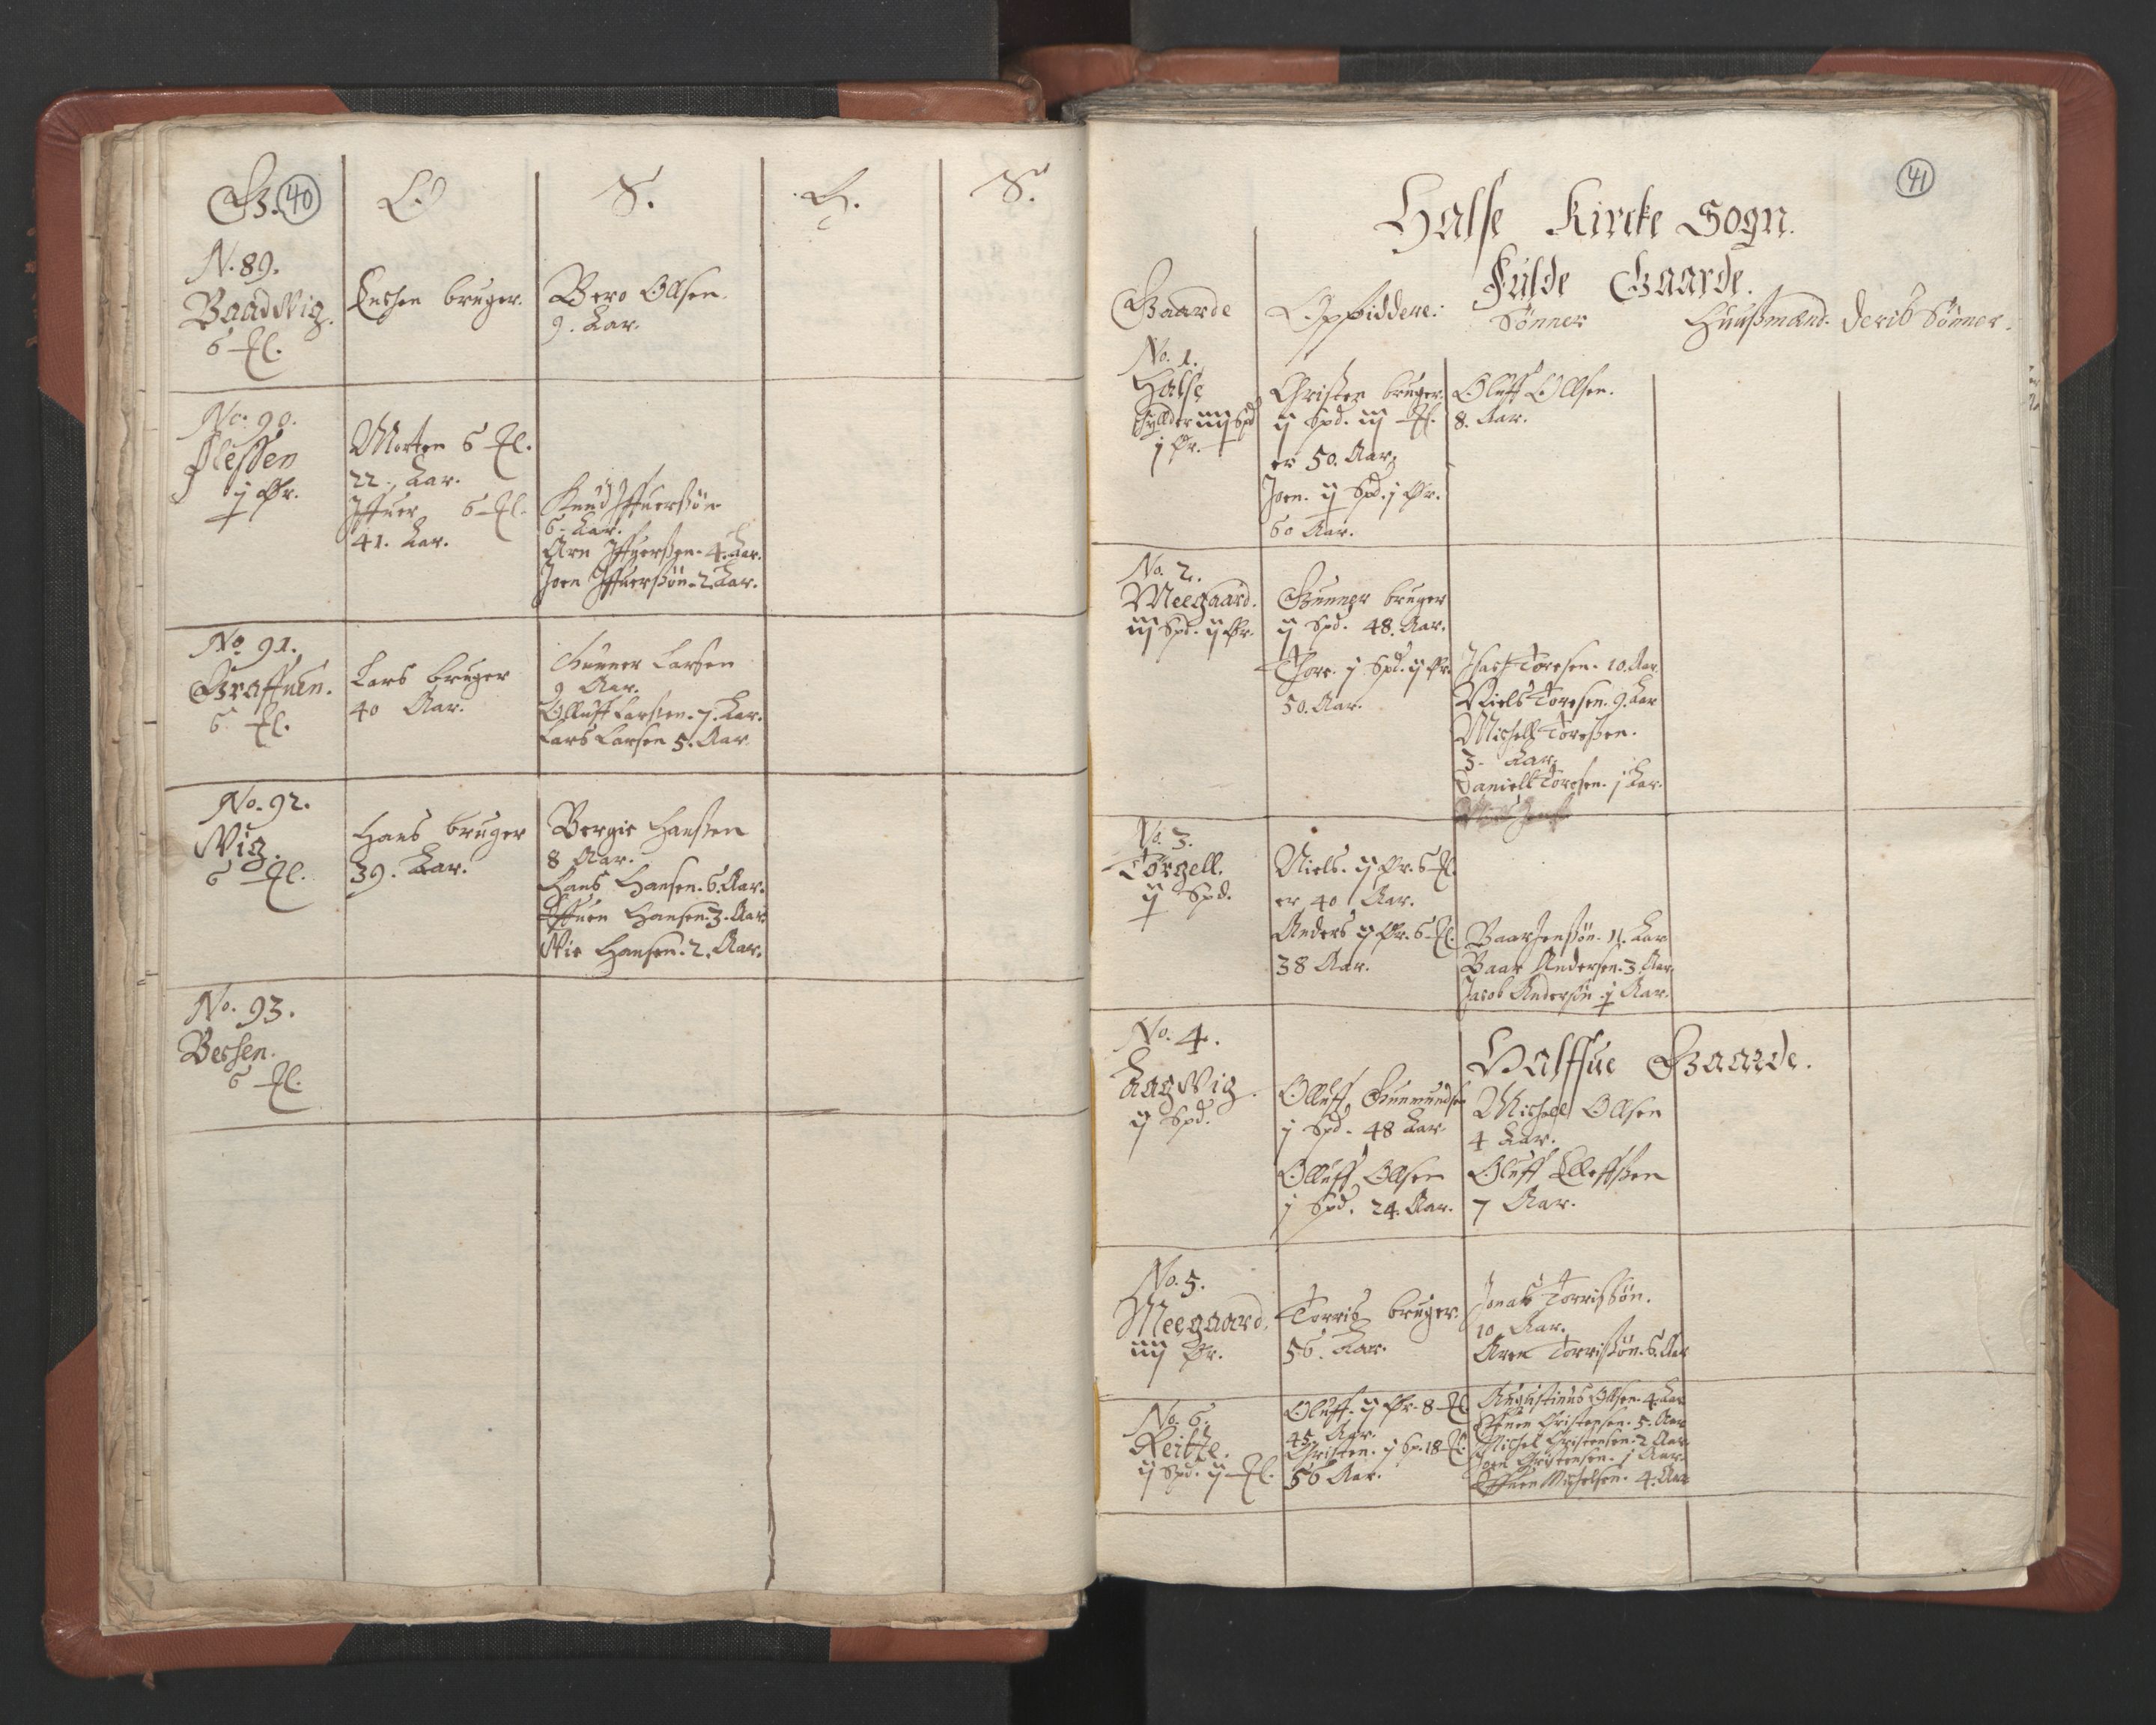 G. 40 O S. H. S.
N. 89.
Baadvig.
6 Ml.
Enchen bruger.
Bero Olsen.
9. Aar.
No. 90.
Flessen
j Ør.
Morten 6 Ml.
22. Aar.
Iffuer 6 Ml.
41. Aar.
Knud Iffuersøn
6. Aar.
Arn Iffuersen. 4. Aar.
Joen Iffuersøn. 2. Aar.
No. 91.
Graffuen.
6 Ml.
Lars bruger
40 Aar.
Gunner Larsen
9 Aar.
Olluff Larsen. 7. Aar.
Lars Larsen 5. Aar
No. 92.
Vig.
6 Ml.
Hans bruger
39. Aar.
Bergie Hanssen
8 Aar.
Hans Hansen. 6. Aar.
Effuen Hansen. 3. Aar
Hansen. 2. Aar.
No. 93.
Bessen.
6 Ml.
41
Halse Kircke Sogn.
Fulde Gaarde.
Gaarde Opsiddere: Sønner Huußmænd. Deris Sønner.
No. 1.
Halse
skylder iiij Spd
j Ør.
Christen bruger
ij Spd. iij Ml.
er 50. Aar
Joen. ij Spd. j Ør.
60 Aar.
Oluff Ollsen.
8. Aar.
No. 2.
Meegaard.
iij Spd. ij Ør.
Gunner bruger
ij Spd. 48. Aar.
Thore. j Spd. ij Ør.
50. Aar.
Isach Toresen. 10. Aar.
Niels Toresen. 9. Aar
Michell Toressen.
3. Aar.
Daniell Toresen. j Aar.
No. 3.
Torgell.
ij Spd.
Niels. ij Ør. 6 Ml.
er 40 Aar.
Anders ij Ør. 6 Ml.
38 Aar.
Baar Jenssøn. 11. Aar
Baar Andersen. 3. Aar.
Jacob Andersøn. j Aar.
Halffue Gaarde.
No. 4.
Aagvig.
ij Spd.
Olluff Gunmundsen
j Spd. 48 Aar.
Olluff Ollsen
j Spd. 24. Aar.
Michell Ollsen
4 Aar.
Oluff Elleffssen
7 Aar.
No. 5.
Meegaard.
iiij Ør.
Torris bruger.
56. Aar.
Jonas Torrissøn.
10 Aar.
Aren Torrissøn. 6. Aar
No. 6.
Reitte.
ij Spd. ij Ml.
Oluff. ij Ør. 8 Ml
45 Aar.
Christen. j Sp. 18 Ml.
56 Aar.
Augustinus Ollsen. 4. Aar
Effuen Christensen. 5. Aar
Michel Christensen. 2 Aar.
Joen Christensen. j Aar.
Effuen Michelsen. 4. Aar